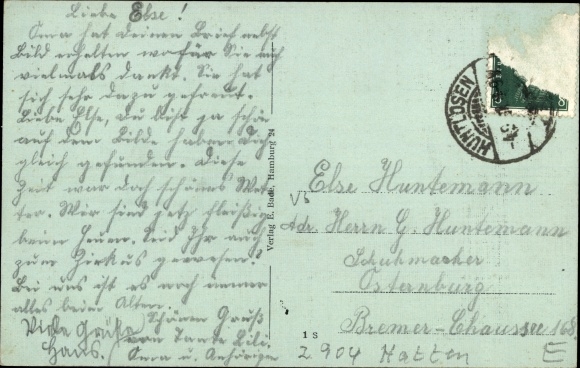 Liebe Else!
Oma hat deinen Brief nebst
Bild erhalten wofür Sie dich
vielmals dankt. Sie hat
sich sehr dazu gefreut.
Liebe Else, Du bist ja schön
auf dem Bilde haben Dich
gleich gefunden. Diese
Zeit war doch schönes Wet-
ter. Wir sind jetzt fleißig
beim Heuen. Seid Ihr auch
zum Zirkus gewesen?
Bei uns ist es noch immer
alles beim Alten.
Schönen Gruß
von Tante Lili.
Oma u. Anhörigen
Viele Grüße
Hans.
Verlag E. Bode, Hamburg 24
1 S
HUNTLOSEN
Else Huntemann
Adr. Herrn G. Huntemann
Schuhmacher
Osternburg
Bremer-Chaussee 168
2904 Hatten
E